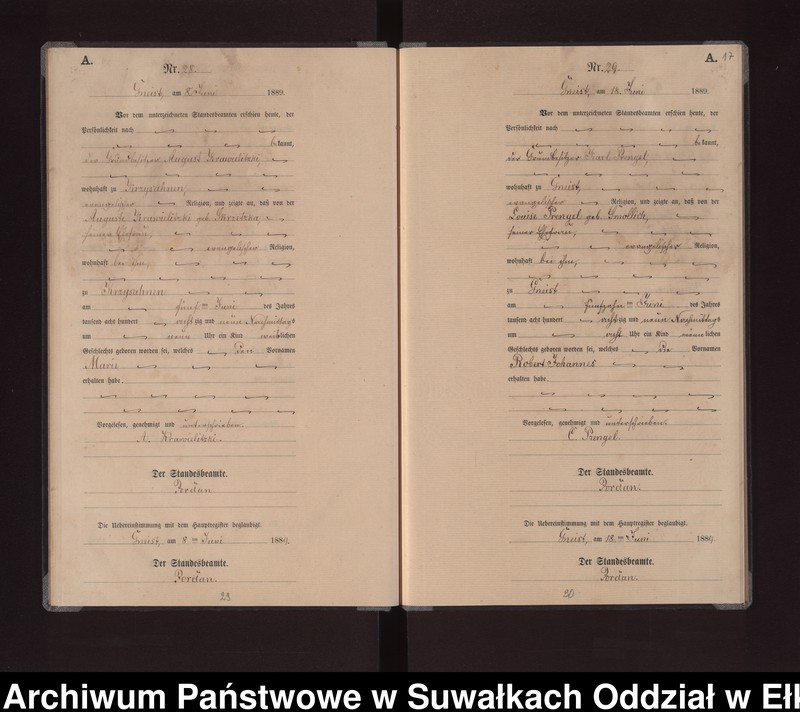 A.
Nr. 28.
Gneist, am 8. Juni 1889.
Vor dem unterzeichneten Standesbeamten erschien heute, der
Persönlichkeit nach
bekannt,
der Grundbesitzer August Krawielitzki,
wohnhaft zu Krzysahnen,
evangelischer Religion, und zeigte an, daß von der
Auguste Krawielitzki geb.
seiner Ehefrau,
evangelischer Religion,
wohnhaft bei ihm,
zu Krzysahnen
am fünf ten Juni des Jahres
tausend acht hundert acht zig und neun Nachmittags
um neun Uhr ein Kind weiblichen
Geschlechts geboren worden sei, welches den Vornamen
Marie
erhalten habe.
Vorgelesen, genehmigt und unterschrieben.
A. Krawielitzki.
Der Standesbeamte.
Pordan
Die Uebereinstimmung mit dem Hauptregister beglaubigt.
Gneist, am 8 ten Juni 1889.
Der Standesbeamte.
Pordan.
23
A. 17
Nr. 29.
Gneist, am 18. Juni 1889.
Vor dem unterzeichneten Standesbeamten erschien heute, der
Persönlichkeit nach
bekannt,
der Grundbesitzer Karl Prengel,
wohnhaft zu Gneist,
evangelischer Religion, und zeigte an, daß von der
Louise Prengel geb. Gmollich,
seiner Ehefrau,
evangelischer Religion,
wohnhaft bei ihm,
zu Gneist
am fünfzehn ten Juni des Jahres
tausend acht hundert acht zig und neun Nachmittags
um acht Uhr ein Kind männlichen
Geschlechts geboren worden sei, welches die Vornamen
Robert Johannes
erhalten habe.
Vorgelesen, genehmigt und unterschrieben.
C. Prengel.
Der Standesbeamte.
Pordan.
Die Uebereinstimmung mit dem Hauptregister beglaubigt.
Gneist, am 18. ten Juni 1889.
Der Standesbeamte.
Pordan.
30
Archiwum Państwowe w Suwałkach Oddział w Ełk